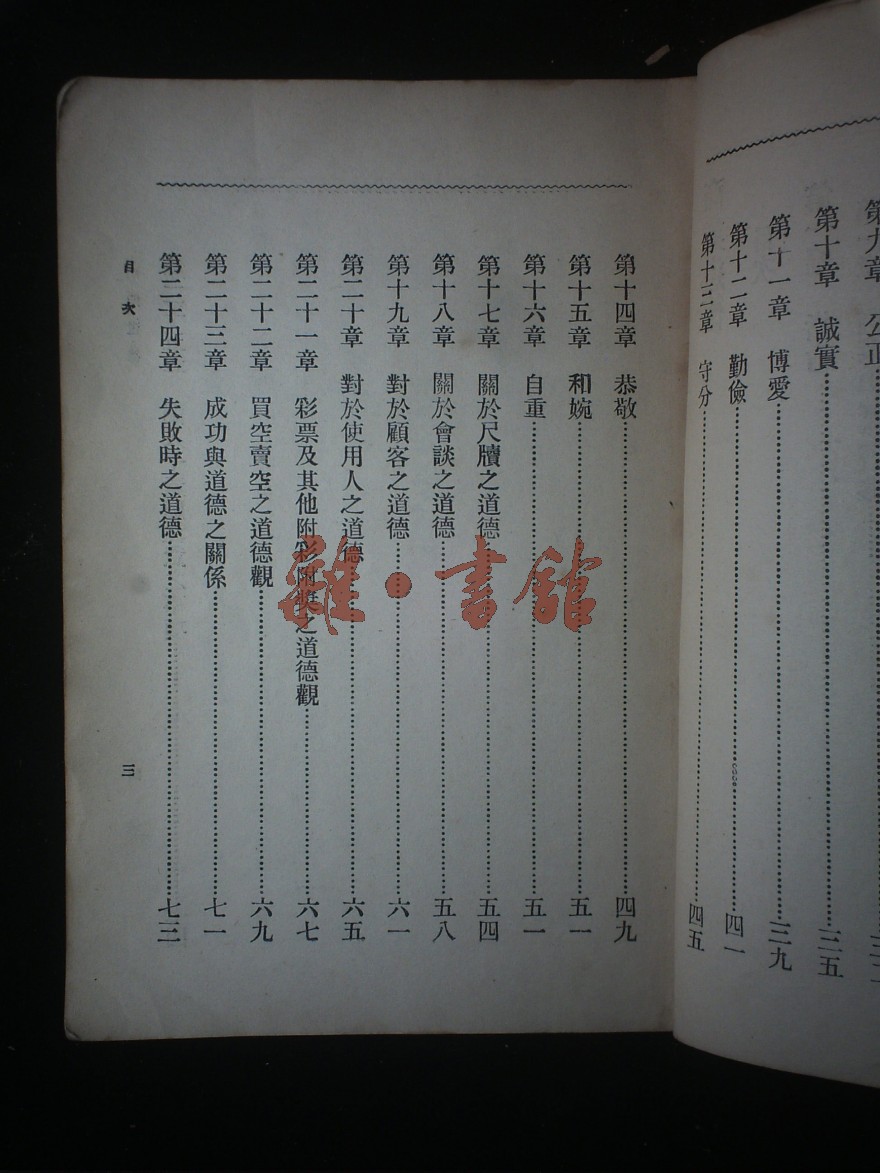 第九章 公正
第十章 誠實……三五
第十一章 博愛……三九
第十二章 勤儉……四一
第十三章 守分……四五
第十四章 恭敬……四九
第十五章 和婉……五一
第十六章 自重……五一
第十七章 關於尺牘之道德……五四
第十八章 關於會談之道德……五八
第十九章 對於顧客之道德……六一
第二十章 對於使用人之道德……六五
第二十一章 彩票及其他附彩附獎之道德觀……六七
第二十二章 買空賣空之道德觀……六九
第二十三章 成功與道德之關係……七一
第二十四章 失敗時之道德……七三
目次
三
雜·書館